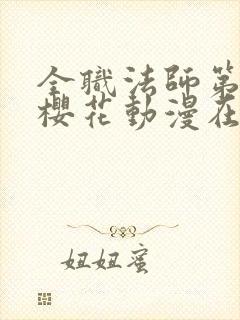 全職法師第
櫻花動漫在
妞妞蜜